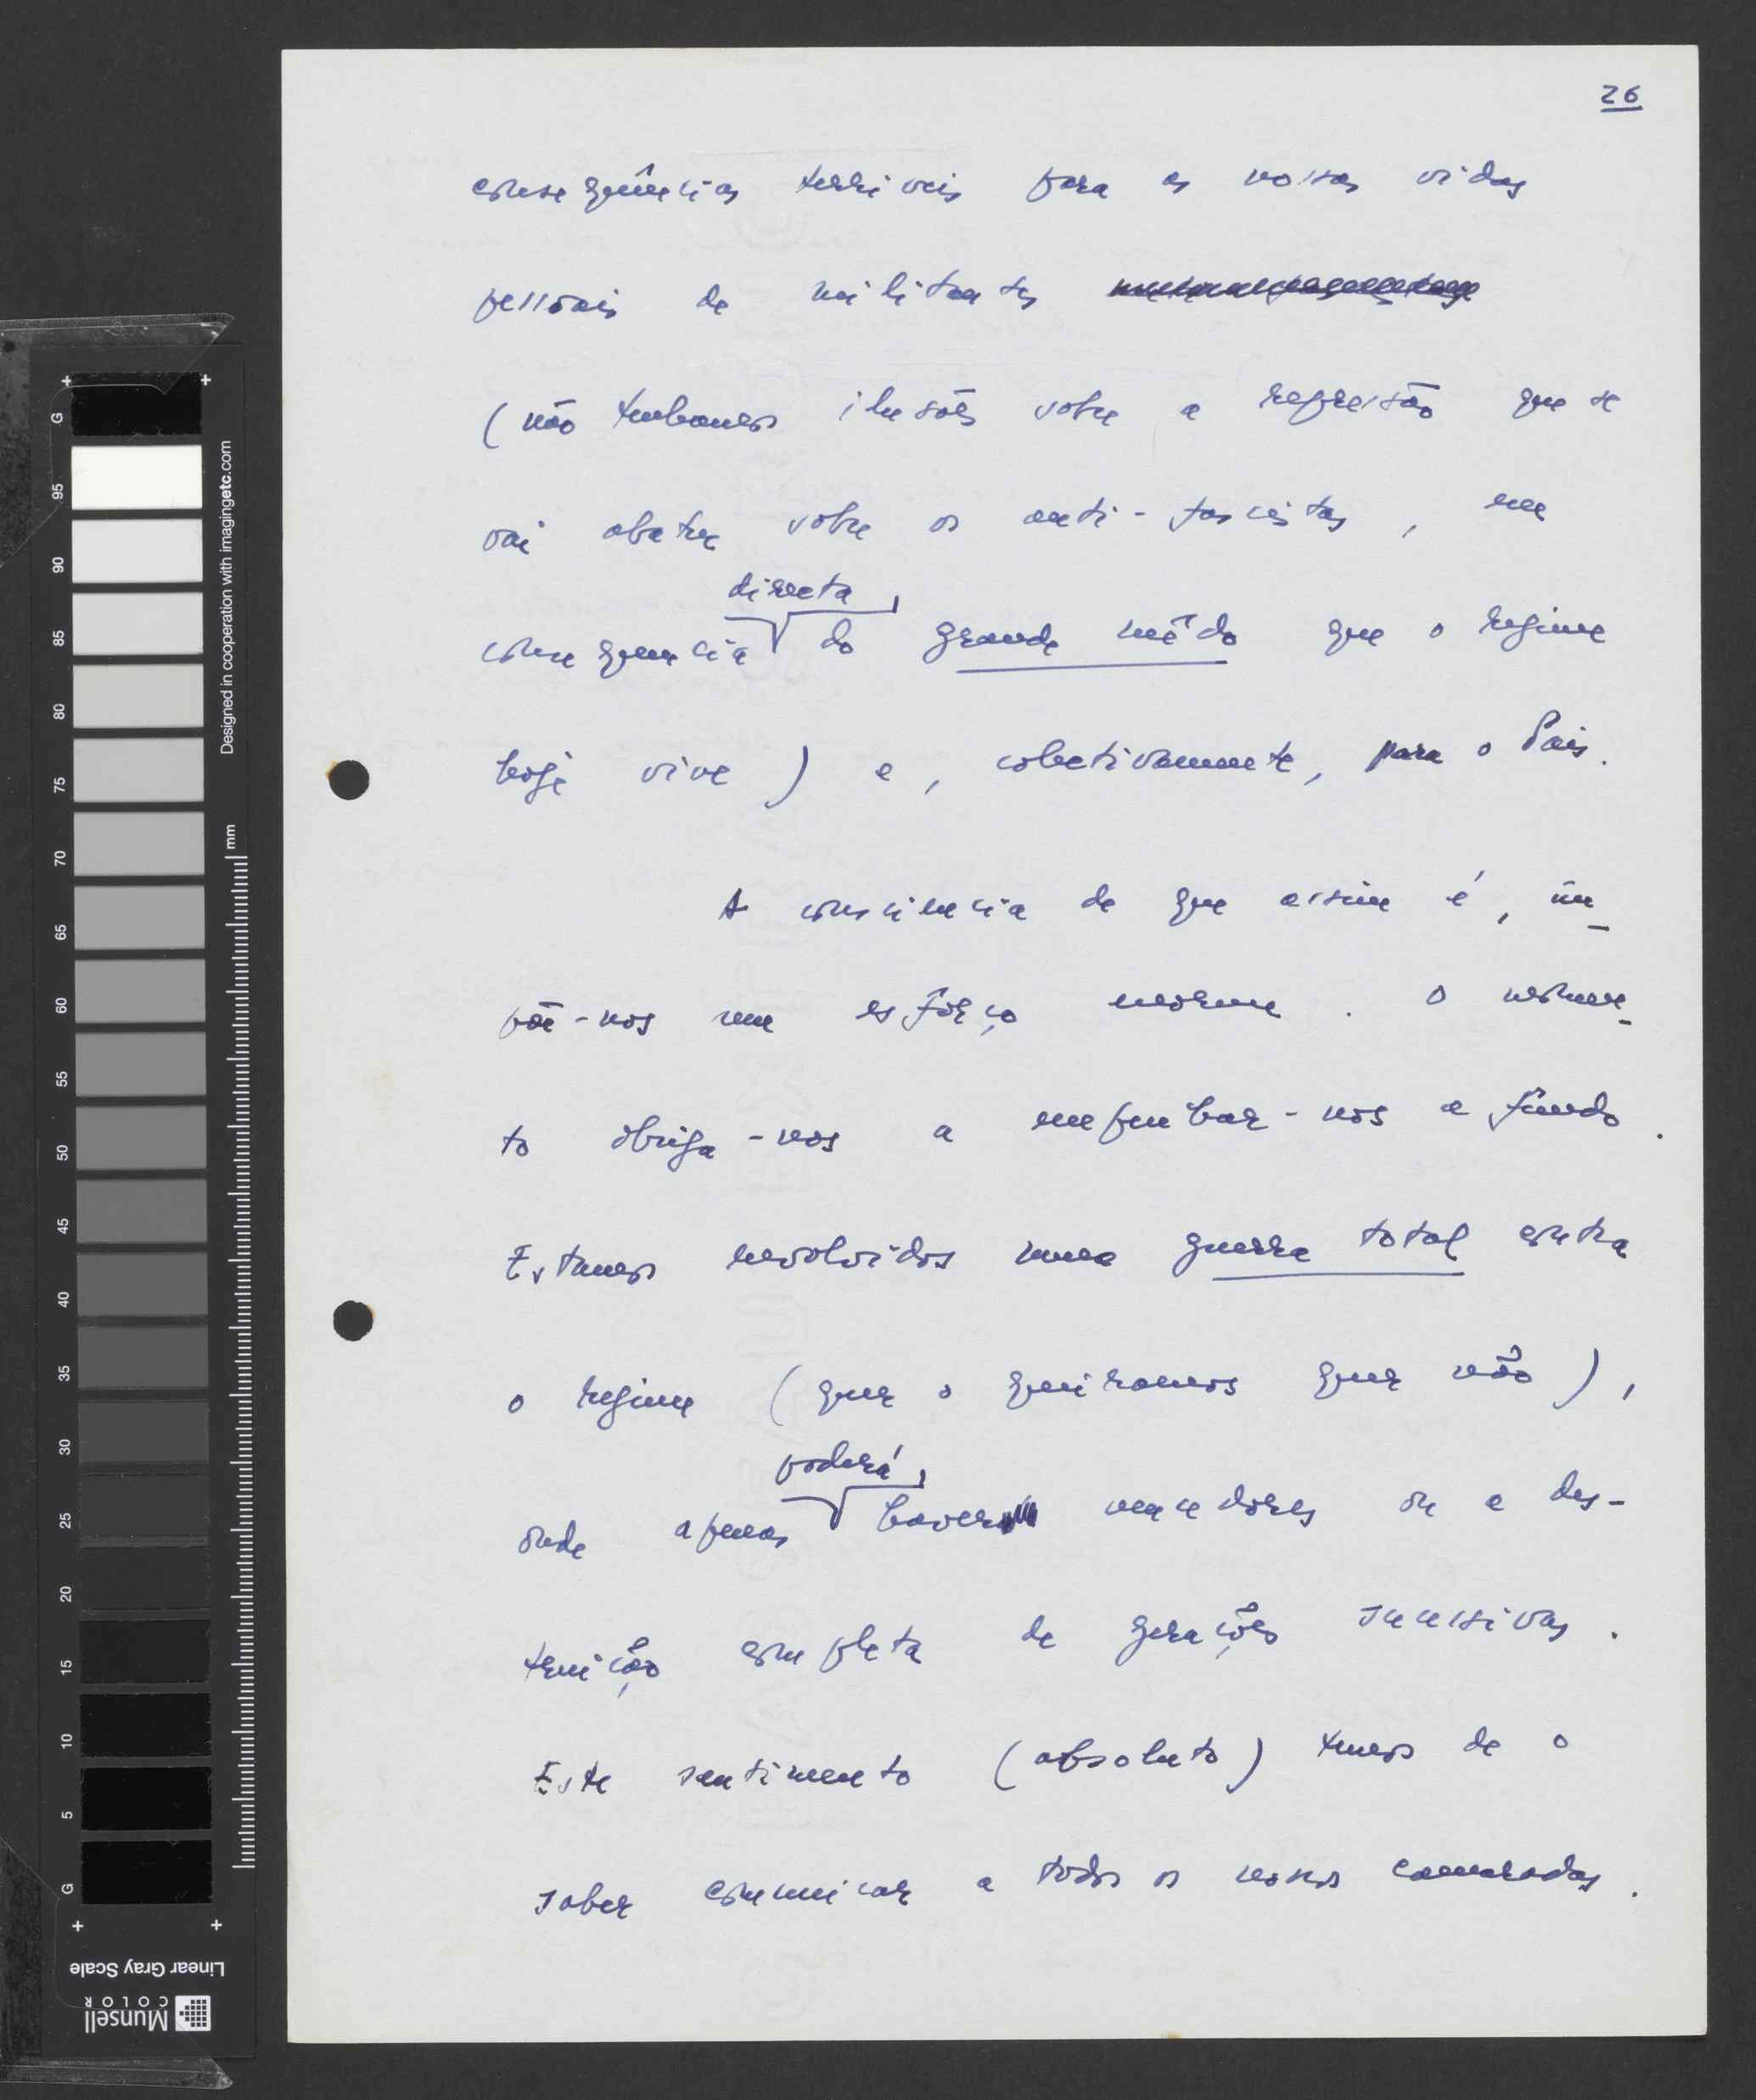 26
consequências terriveis para as nossas vidas
pessoais de militantes
(não tenhamos ilusões sobre a repressão que se
vai abater sobre os anti-fascistas, em
directa
consequencia do grande mêdo que o regime
hoje vive) e, colectivamente, para o País.
A consciencia de que assim é, im-
põe-nos um esfôrço enorme. O momen-
to obriga-nos a empenhar-nos a fundo.
Estamos envolvidos numa guerra total contra
o regime (quer o queiramos quer não),
poderá
onde apenas haver vencedores ou a des-
truição completa de gerações sucessivas.
Este sentimento (absoluto) temos de o
saber comunicar a todos os nossos camaradas.
G
95
90
85
80
75
70
65
60
55
50
45
40
35
30
25
20
15
10
5
G
Designed in cooperation with imagingetc.com
mm
Linear Gray Scale
Munsell
COLOR